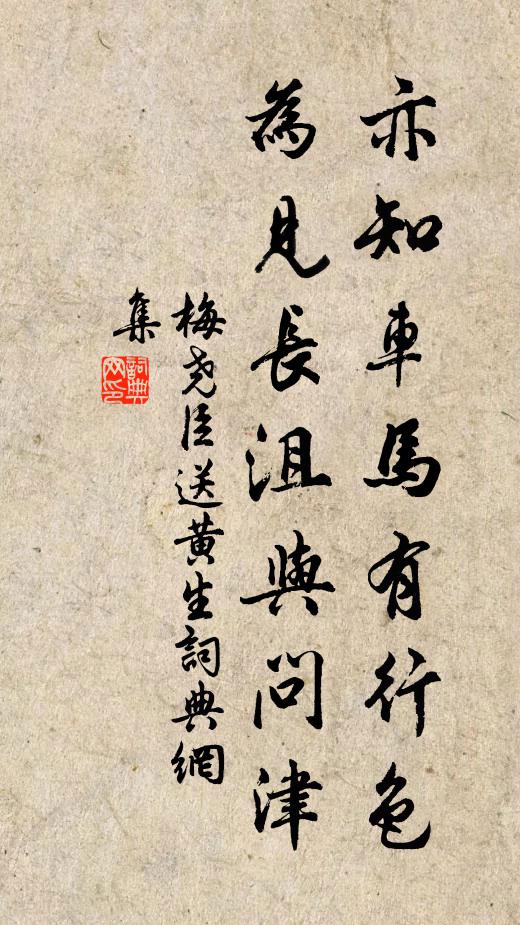 亦知車馬有行色
為見長沮與問津
梅堯臣送黄生詞典網
集
詞典
网印